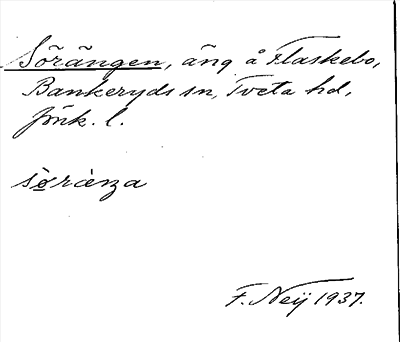 Sörängen, äng å Flaskebo,
Bankeryds sn, Tveta hd,
Jönk. l.
sö̀ràŋa
F. Neij 1937.